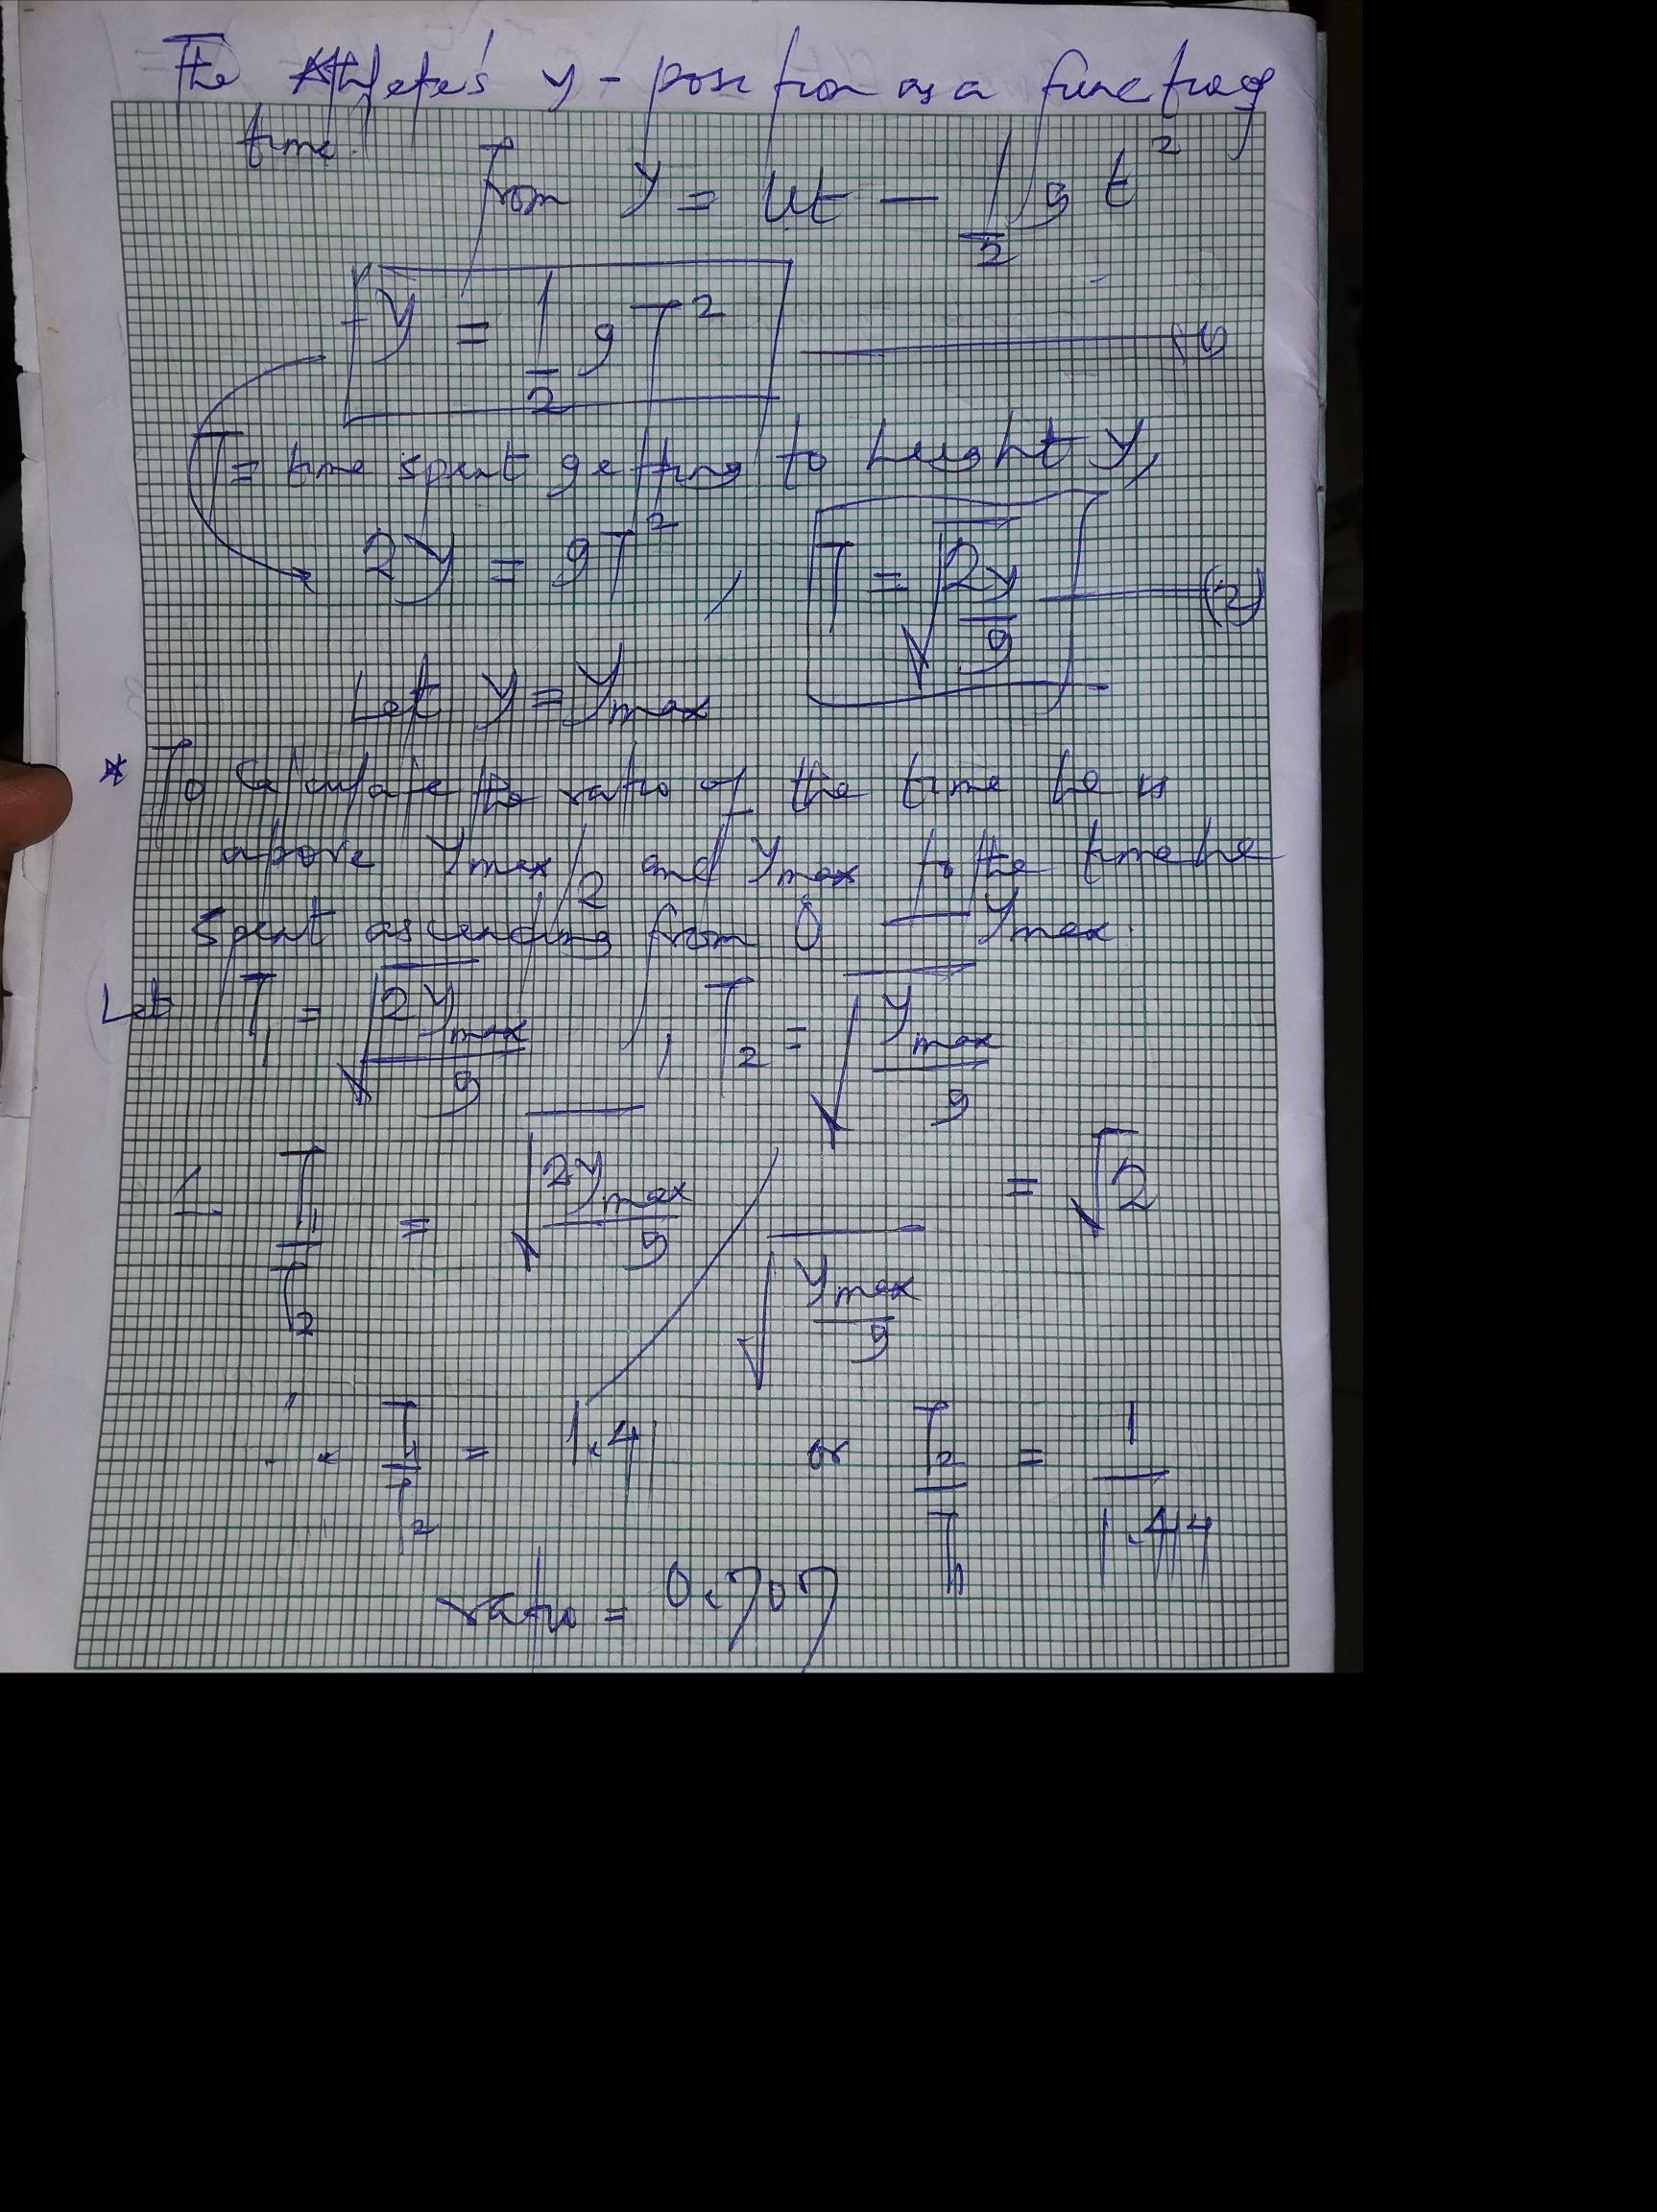 The Athlete's y-position as a function of
time.
from y = ut - 1/2 g t²
y = 1/2 gT² (1)
T = time spent getting to height y,
2y = gT² , T = √(2y/g) (2)
Let y = ymax
* To Calculate the ratio of the time he is
above ymax/2 and ymax to the time he
Spent ascending from 0 — ymax.
Let T₁ = √(2ymax/g) , T₂ = √(ymax/g)
T₁/T₂ = √(2ymax/g) / √(ymax/g) = √2
∴ T₁/T₂ = 1.41 or T₂/T₁ = 1/1.414
ratio = 0.707